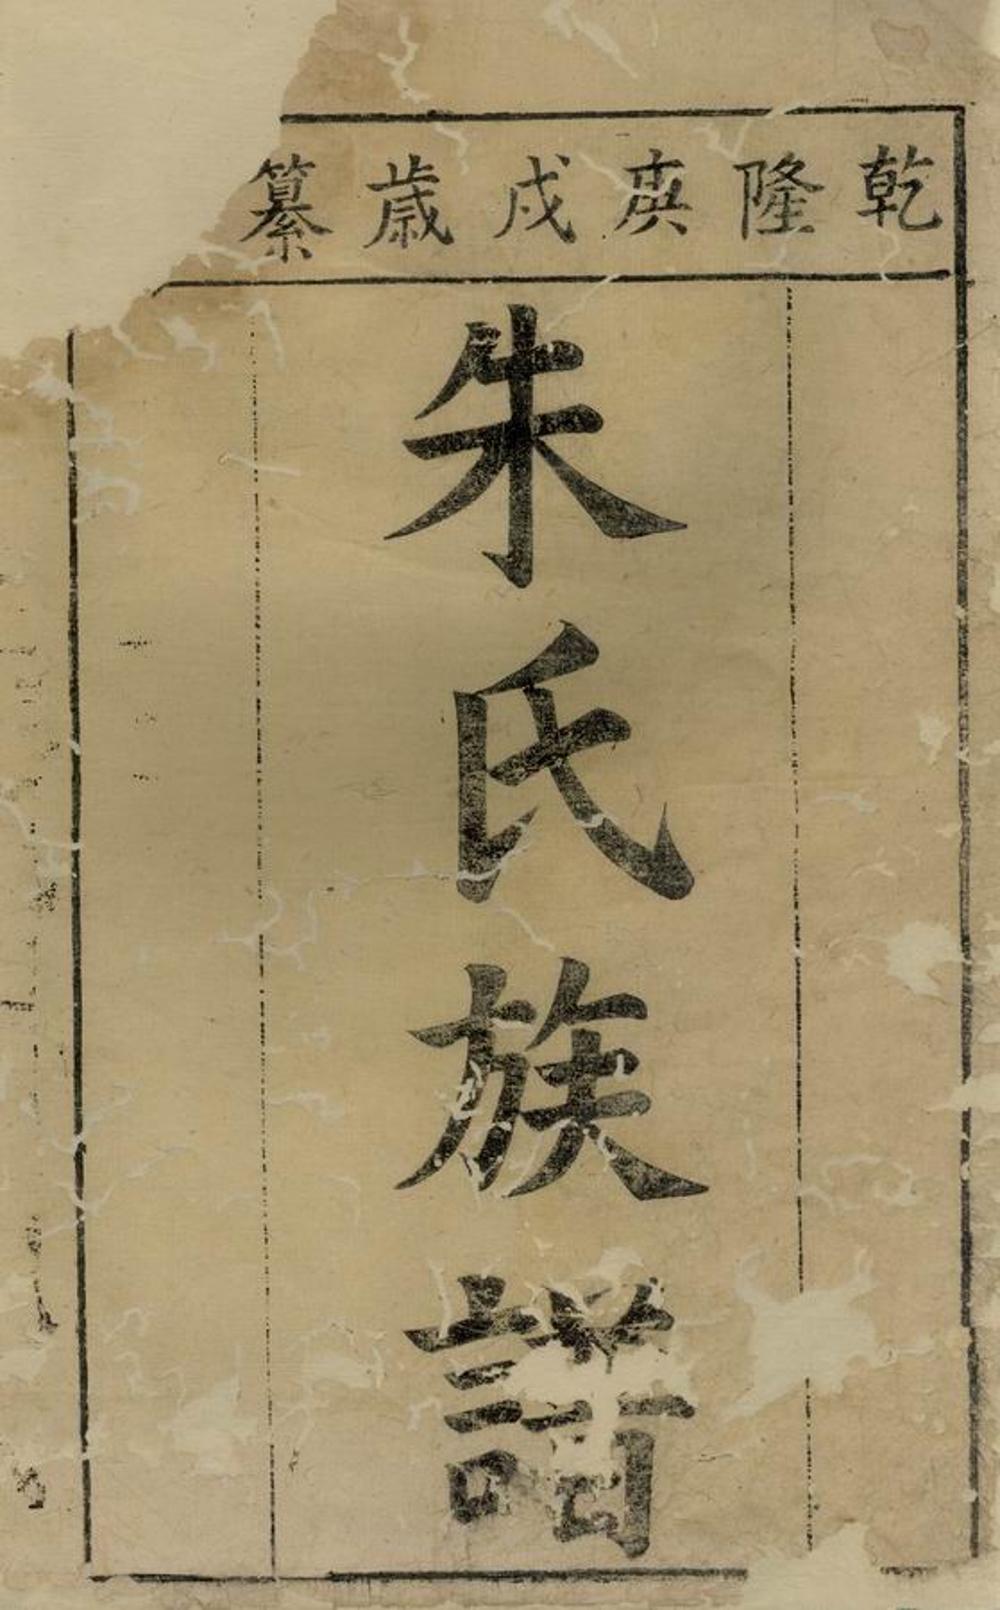 乾隆庚戌歲纂
朱氏族譜